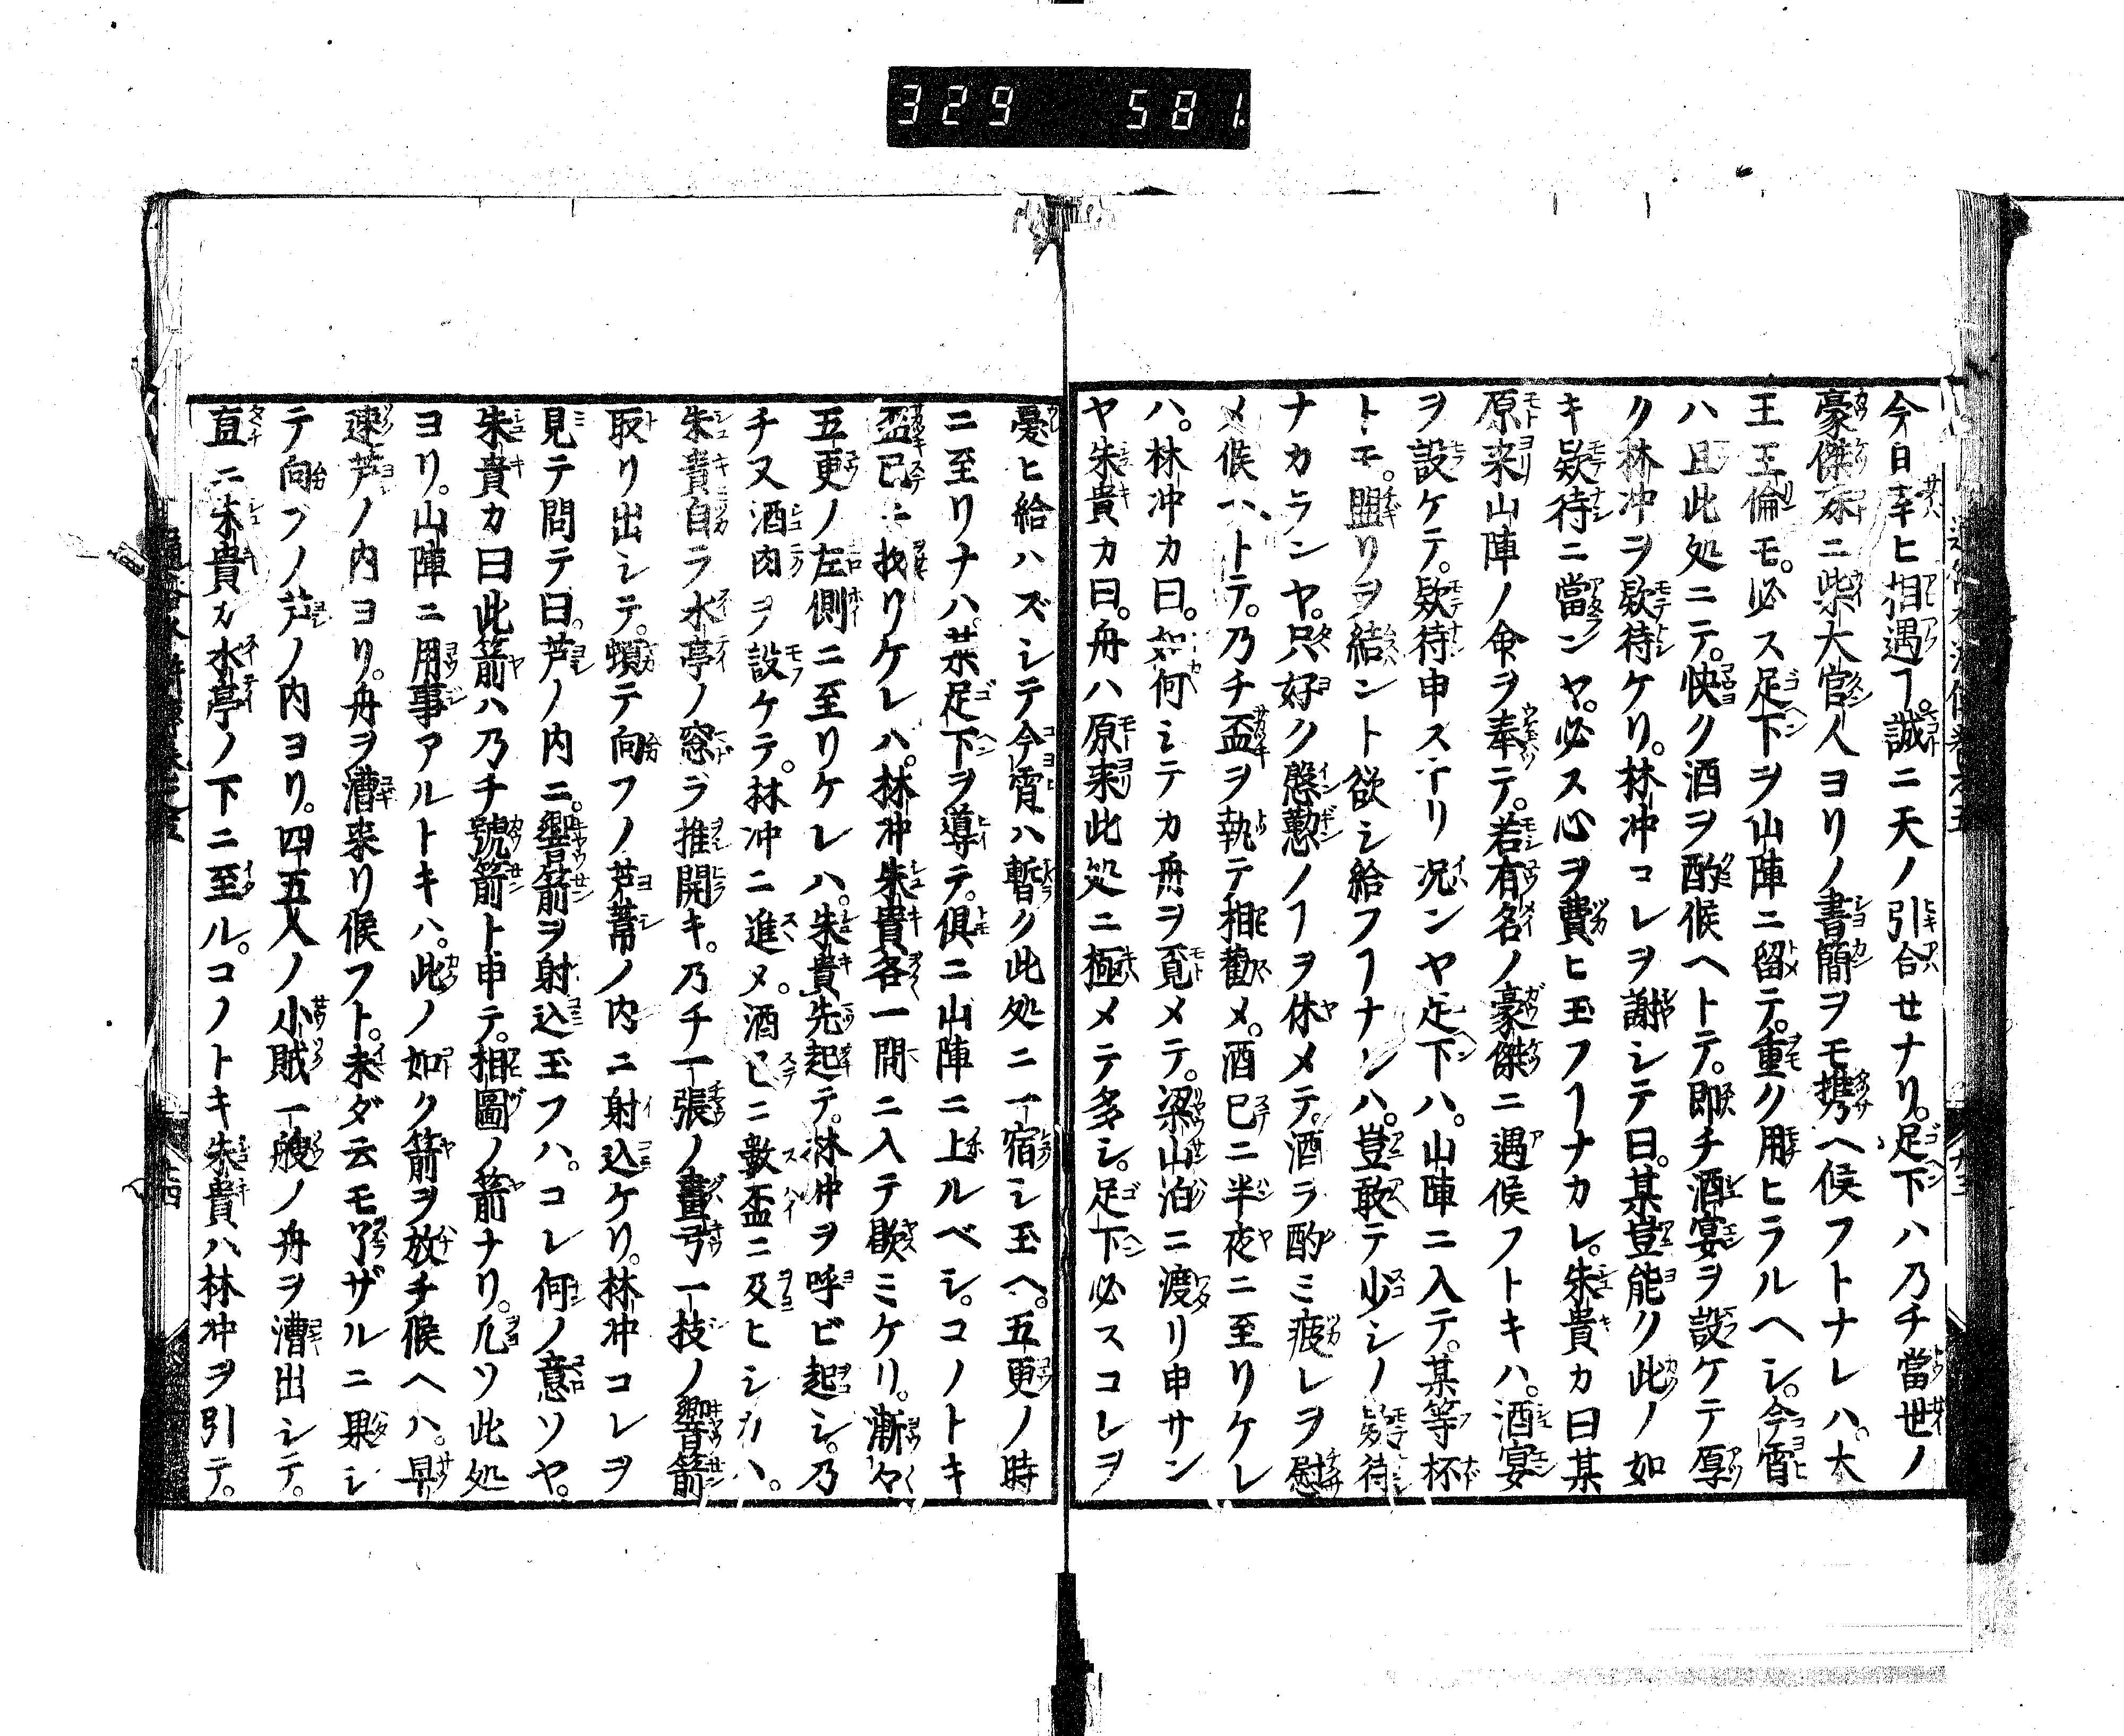 329 581.
今日幸ヒ相遇ヿ。誠ニ天ノ引合セナリ。足下ハ乃チ當世ノ
豪傑亦ニ柴大官人ヨリノ書簡ヲモ携ヘ候フトナレハ。大
王王倫モ。必ス足下ヲ山陣ニ留テ。重ク用ヒラルヘシ。今宵
ハ且此処ニテ。快ク酒ヲ酌候ヘトテ。即チ酒宴ヲ設ケテ厚
ク林冲ヲ欵待ケリ。林冲コレヲ謝シテ曰。某豈能ク此ノ如
キ欵待ニ當ンヤ。必ス心ヲ費ヒ玉フヿナカレ。朱貴カ曰某
原来山陣ノ命ヲ奉テ。若有名ノ豪傑ニ遇候フトキハ。酒宴
ヲ設ケテ。欵待申スナリ况ンヤ足下ハ。山陣ニ入テ。某等杯
トモ。盟リヲ結ント欲シ給フヿナンハ。豈敢テ少シノ欵待
ナカランヤ。只好ク慇懃ノヿヲ休メテ。酒ラ酌ミ疲レヲ慰
メ候ハトテ。乃チ盃ヲ執テ相勸メ。酒已ニ半夜ニ至リケレ
ハ。林冲カ曰。如何シテカ舟ヲ覓メテ。梁山泊ニ渡リ申サン
ヤ朱貴カ曰。舟ハ原来此処ニ極メテ多シ。足下必スコレヲ
憂ヒ給ハズシテ今宵ハ暫ク此処ニ一宿シ玉ヘ。五更ノ時
ニ至リナハ。某足下ヲ導テ。俱ニ山陣ニ上ルベシ。コノトキ
盃已ニ收リケレハ。林冲朱貴各一間ニ入テ歇ミケリ。漸々
五更ノ左側ニ至リケレハ。朱貴先起テ。林冲ヲ呼ビ起シ。乃
チ又酒肉ヲ設ケテ。林冲ニ進メ。酒已ニ數盃ニ及ヒシカハ。
朱貴自ラ水亭ノ窓ラ推開キ。乃チ一張ノ畫弓一技ノ響箭
取リ出シテ。頓テ向フノ芦葦ノ内ニ射込ケリ。林冲コレヲ
見テ問テ曰。芦ノ内ニ。響箭ヲ射込玉フハ。コレ何ノ意ソヤ。
朱貴カ曰此箭ハ乃チ號箭ト申テ。相圖ノ箭ナリ。凢ソ此処
ヨリ。山陣ニ用事アルトキハ。此ノ如ク箭ヲ放チ候ヘハ。早
速芦ノ内ヨリ。舟ヲ漕来リ候フト。未ダ云モ了ザルニ果シ
テ向フノ芦ノ内ヨリ。四五人ノ小賊一艘ノ舟ヲ漕出シテ。
直ニ朱貴カ水亭ノ下ニ至ル。コノトキ朱貴ハ林冲ヲ引テ。